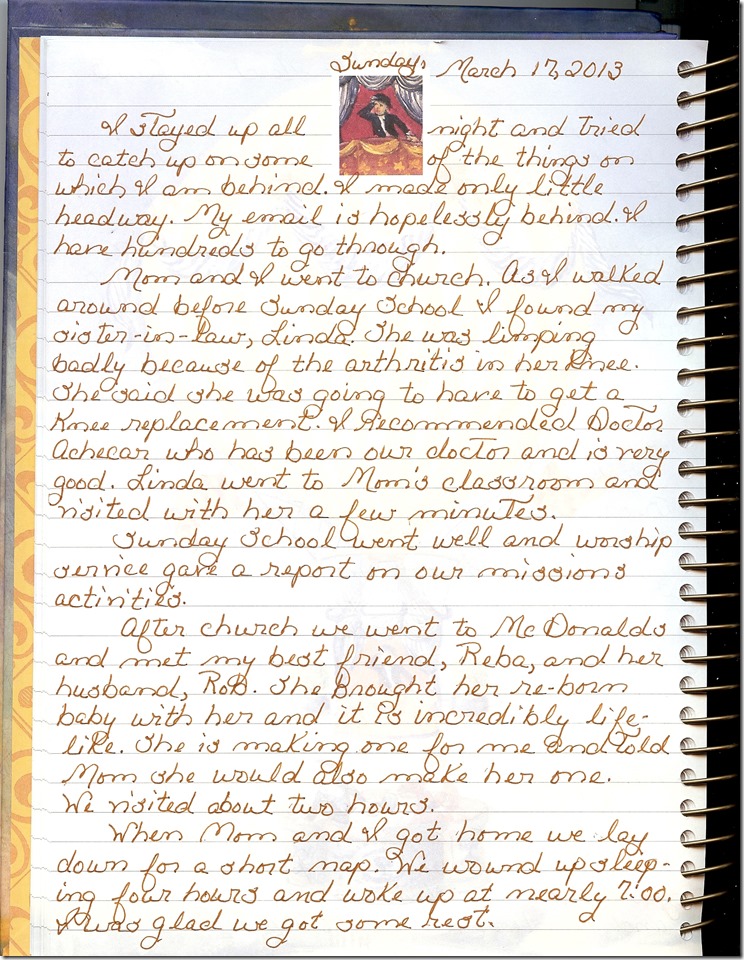 Sunday, March 17, 2013
I stayed up all night and tried
to catch up on some of the things on
which I am behind. I made only little
headway. My email is hopelessly behind. I
have hundreds to go through.
Mom and I went to church. As I walked
around before Sunday School I found my
sister-in-law, Linda. She was limping
badly because of the arthritis in her knee.
She said she was going to have to get a
knee replacement. I recommended Doctor
Achecar who has been our doctor and is very
good. Linda went to Mom's classroom and
visited with her a few minutes.
Sunday School went well and worship
service gave a report on our missions
activities.
After church we went to McDonalds
and met my best friend, Reba, and her
husband, Rob. She brought her re-born
baby with her and it is incredibly life-
like. She is making one for me and told
Mom she would also make her one.
We visited about two hours.
When Mom and I got home we lay
down for a short nap. We wound up sleep-
ing four hours and woke up at nearly 7:00.
I was glad we got some rest.